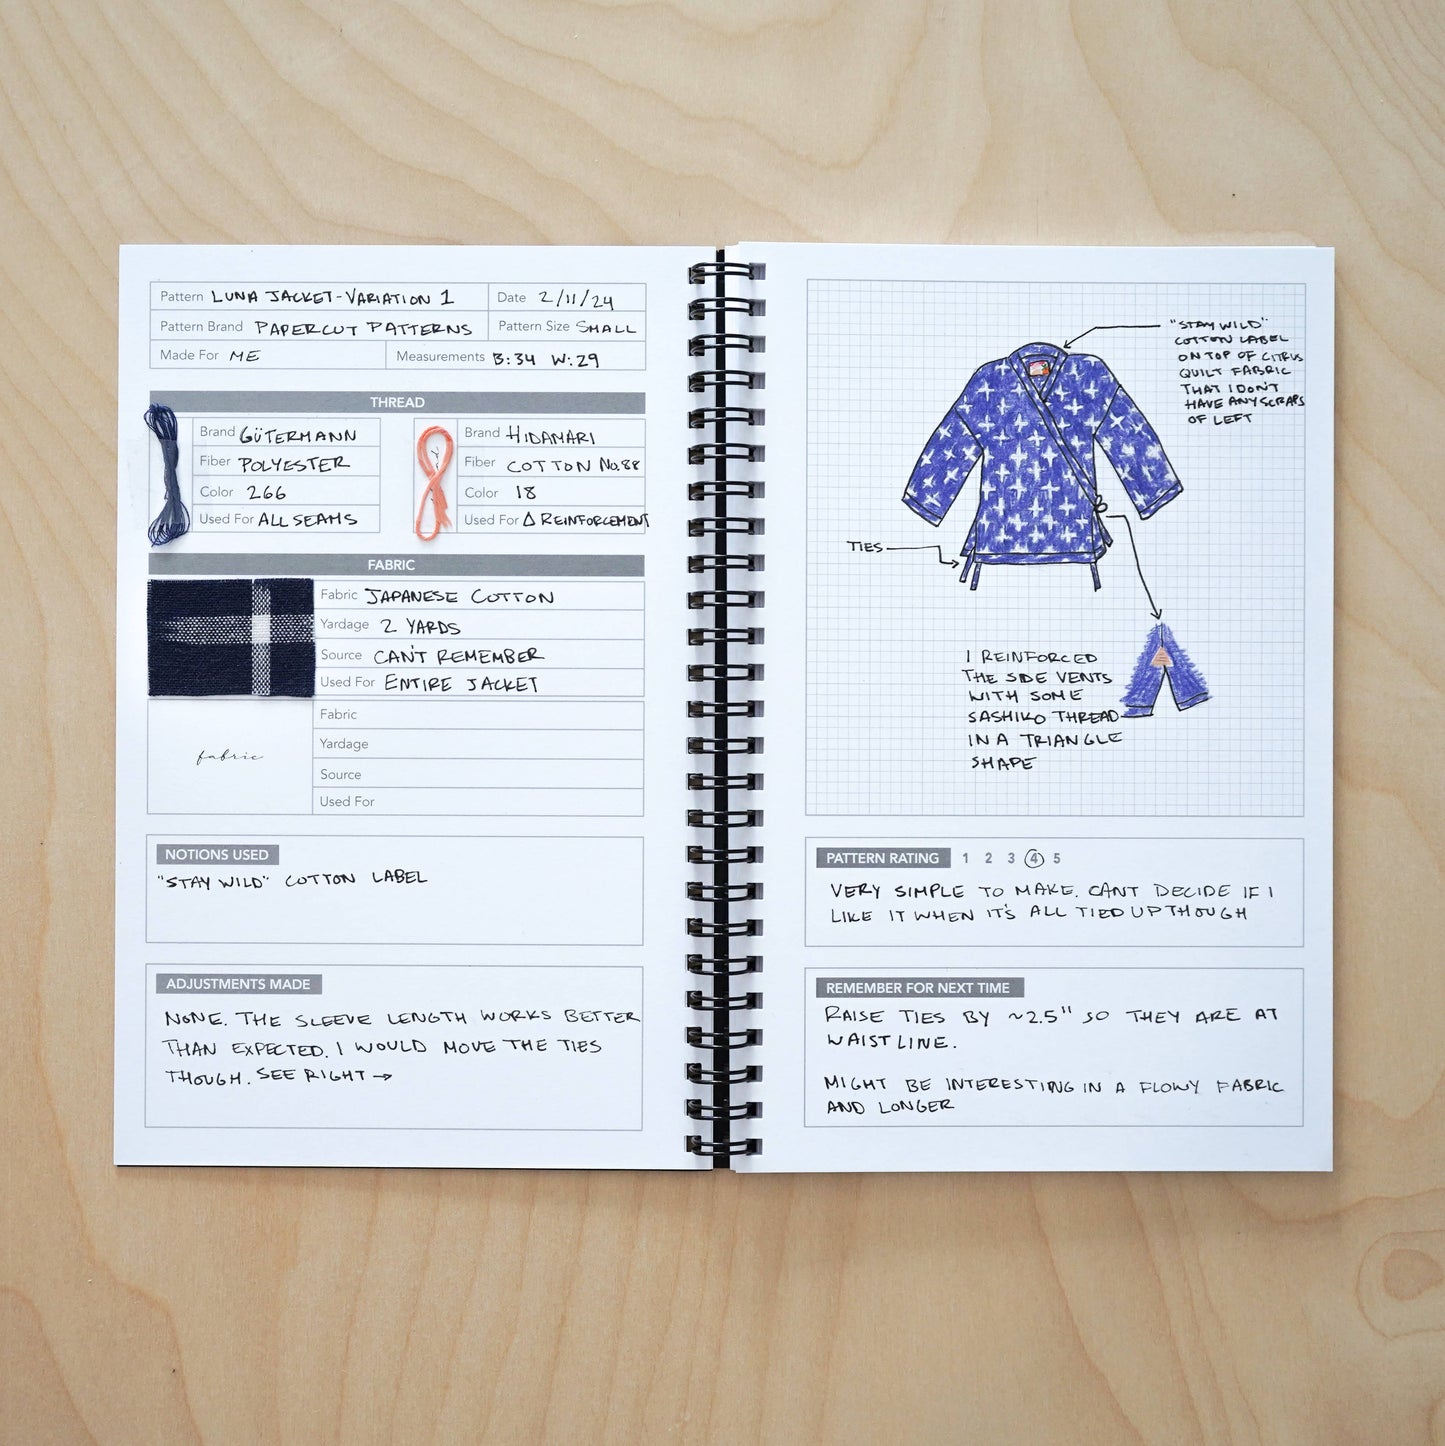 Pattern LUNA JACKET-VARIATION 1
Date 2/11/24
Pattern Brand PAPERCUT PATTERNS
Pattern Size SMALL
Made For ME
Measurements B:34 W:29
THREAD
Brand GÜTERMANN
Fiber POLYESTER
Color 266
Used For ALL SEAMS
Brand HIDAMARI
Fiber COTTON No.88
Color 18
Used For Δ REINFORCEMENT
FABRIC
Fabric JAPANESE COTTON
Yardage 2 YARDS
Source CAN'T REMEMBER
Used For ENTIRE JACKET
fabric
Fabric
Yardage
Source
Used For
NOTIONS USED
"STAY WILD" COTTON LABEL
ADJUSTMENTS MADE
NONE. THE SLEEVE LENGTH WORKS BETTER
THAN EXPECTED. I WOULD MOVE THE TIES
THOUGH. SEE RIGHT →
"STAY WILD"
COTTON LABEL
ON TOP OF CITRUS
QUILT FABRIC
THAT I DON'T
HAVE ANY SCRAPS
OF LEFT
TIES
I REINFORCED
THE SIDE VENTS
WITH SOME
SASHIKO THREAD
IN A TRIANGLE
SHAPE
PATTERN RATING 1 2 3 4 5
VERY SIMPLE TO MAKE. CANT DECIDE IF I
LIKE IT WHEN IT'S ALL TIED UP THOUGH
REMEMBER FOR NEXT TIME
RAISE TIES BY ~2.5" SO THEY ARE AT
WAISTLINE.
MIGHT BE INTERESTING IN A FLOWY FABRIC
AND LONGER